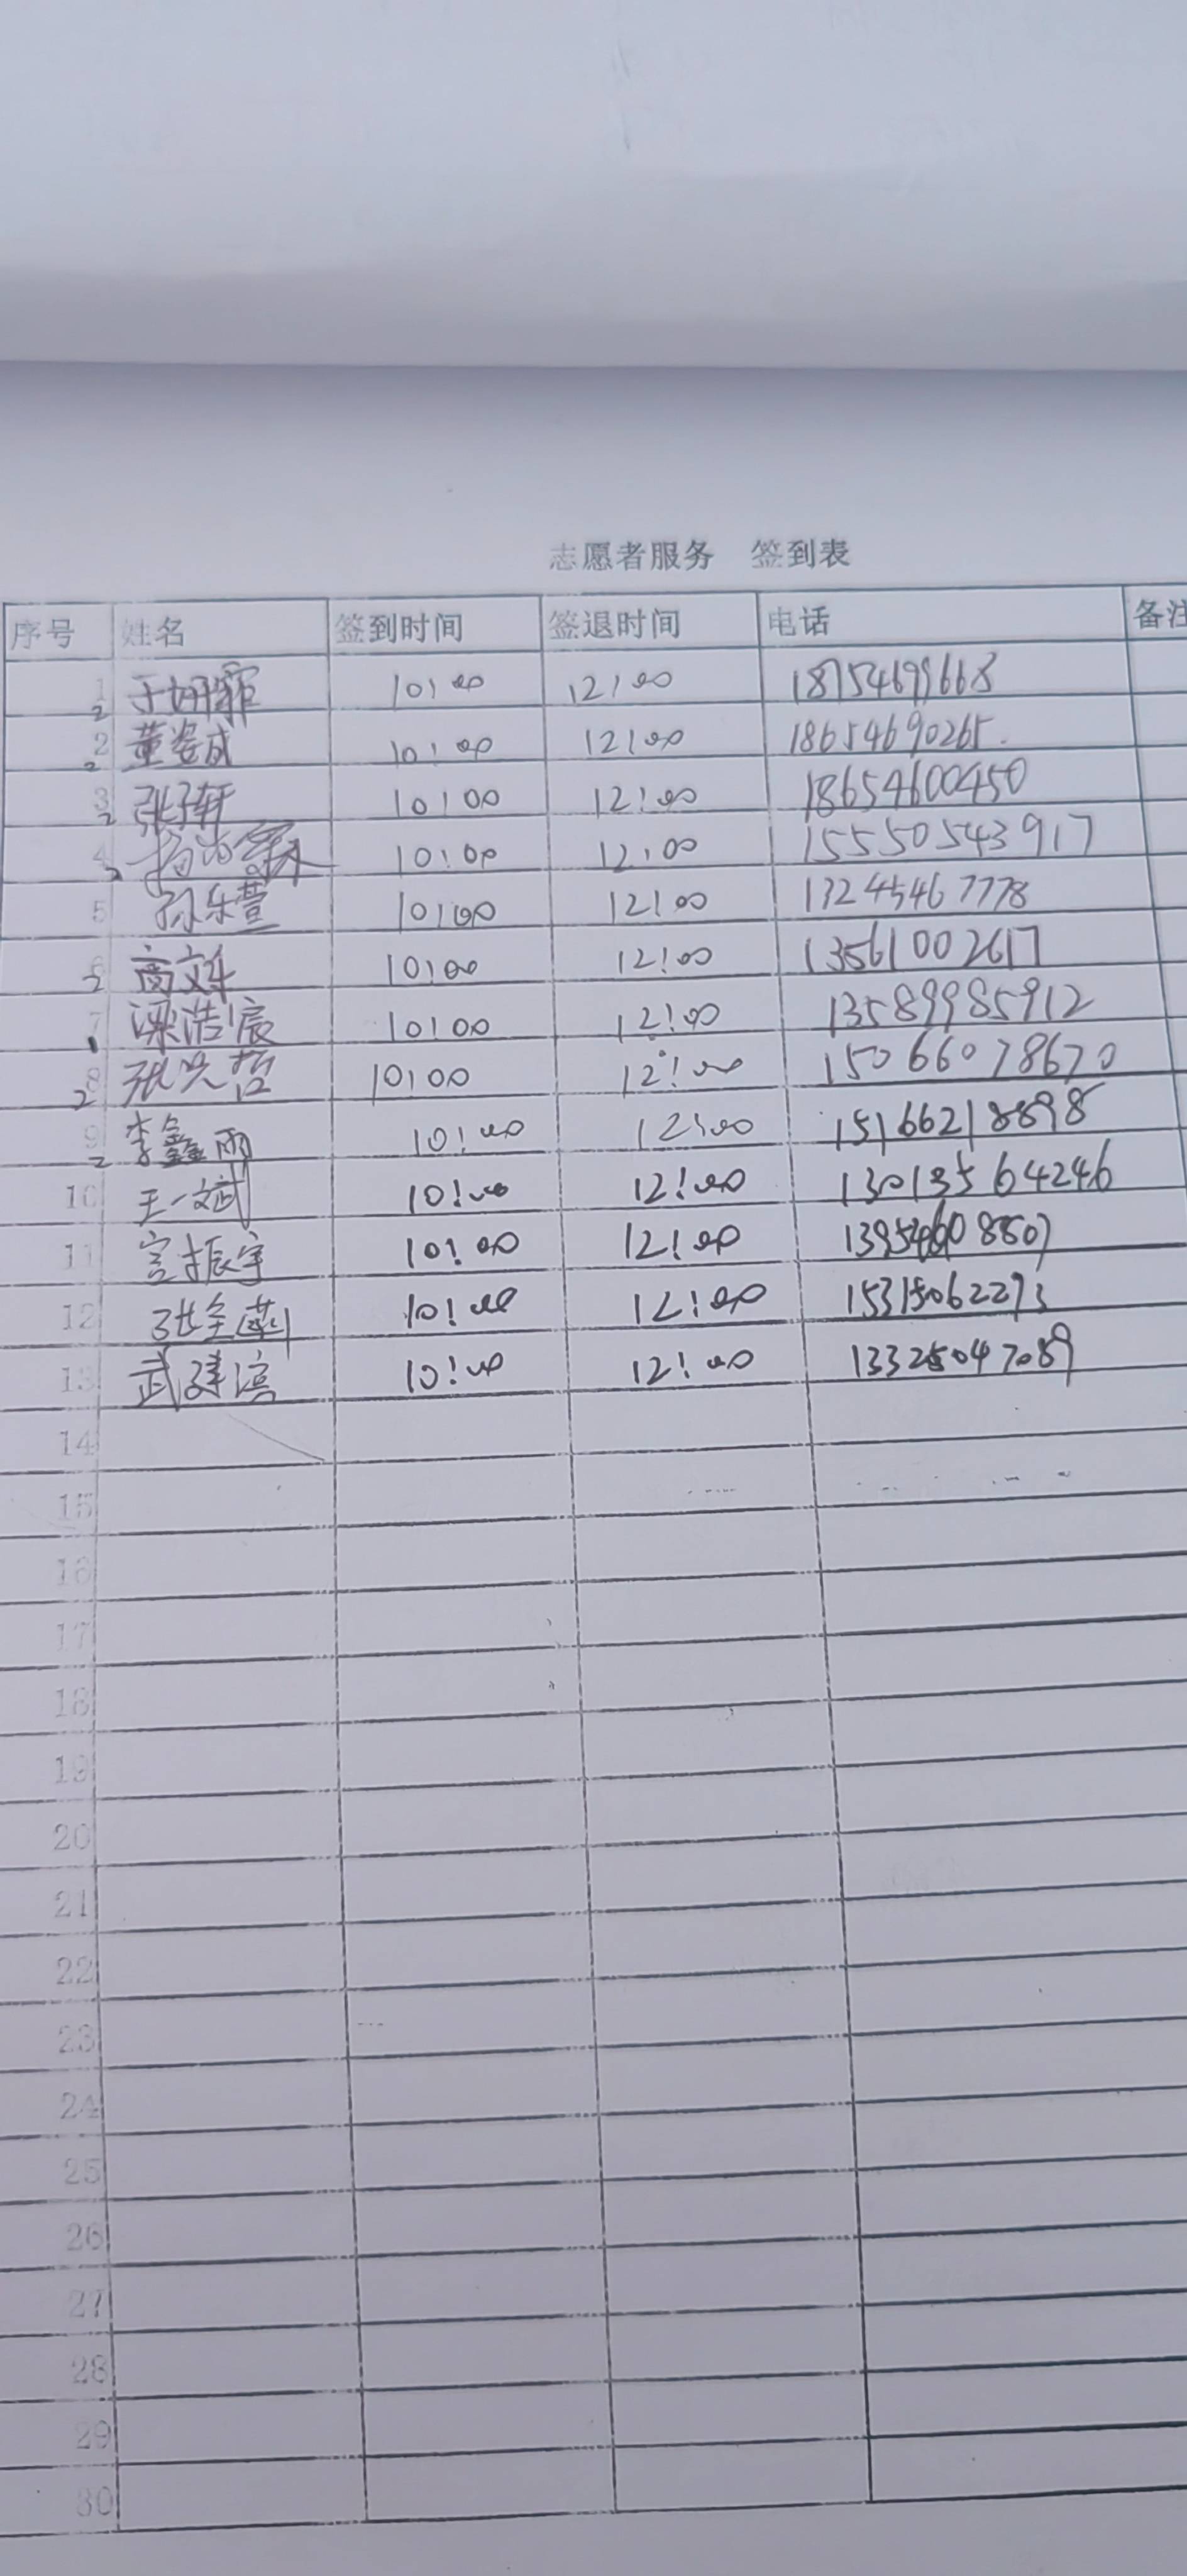 志愿者服务 签到表
序号 姓名 签到时间 签退时间 电话 备注
1 2 于 10:00 12:00 18754699668
2 2 董姿成 10:00 12:00 18654690265.
3 2 张子轩 10:00 12:00 18654600450
4 2 杨 10:00 12:00 15550543917
5 孙乐萱 10:00 12:00 13245467778
6 2 高文 10:00 12:00 13561002617
7 梁浩宸 10:00 12:00 13589985912
8 2 张 哲 10:00 12:00 15066078670
9 2 李鑫雨 10:00 12:00 15166218898
10 王一斌 10:00 12:00 13013564246
11 宫振宇 10:00 12:00
12 张 10:00 12:00 15315062273
13 武建滨 10:00 12:00 13325047089
14
15
16
17
18
19
20
21
22
23
24
25
26
27
28
29
30